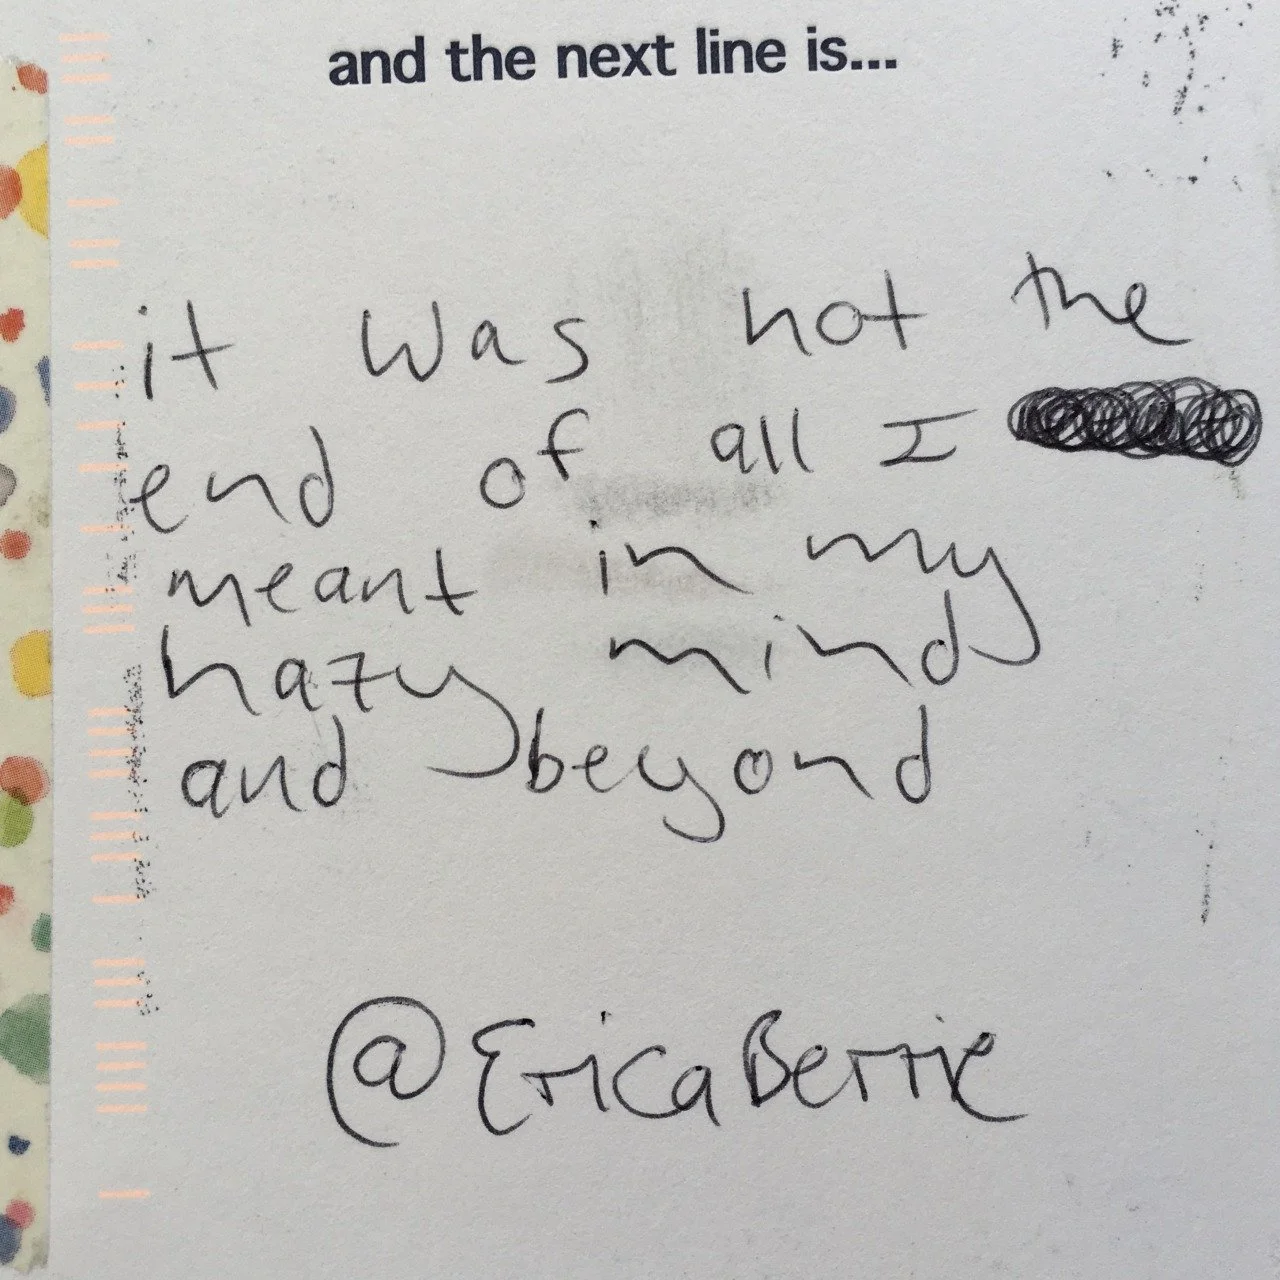 and the next line is...
it was not the
end of all I
meant in my
hazy mind
and beyond
@EricaBerrie